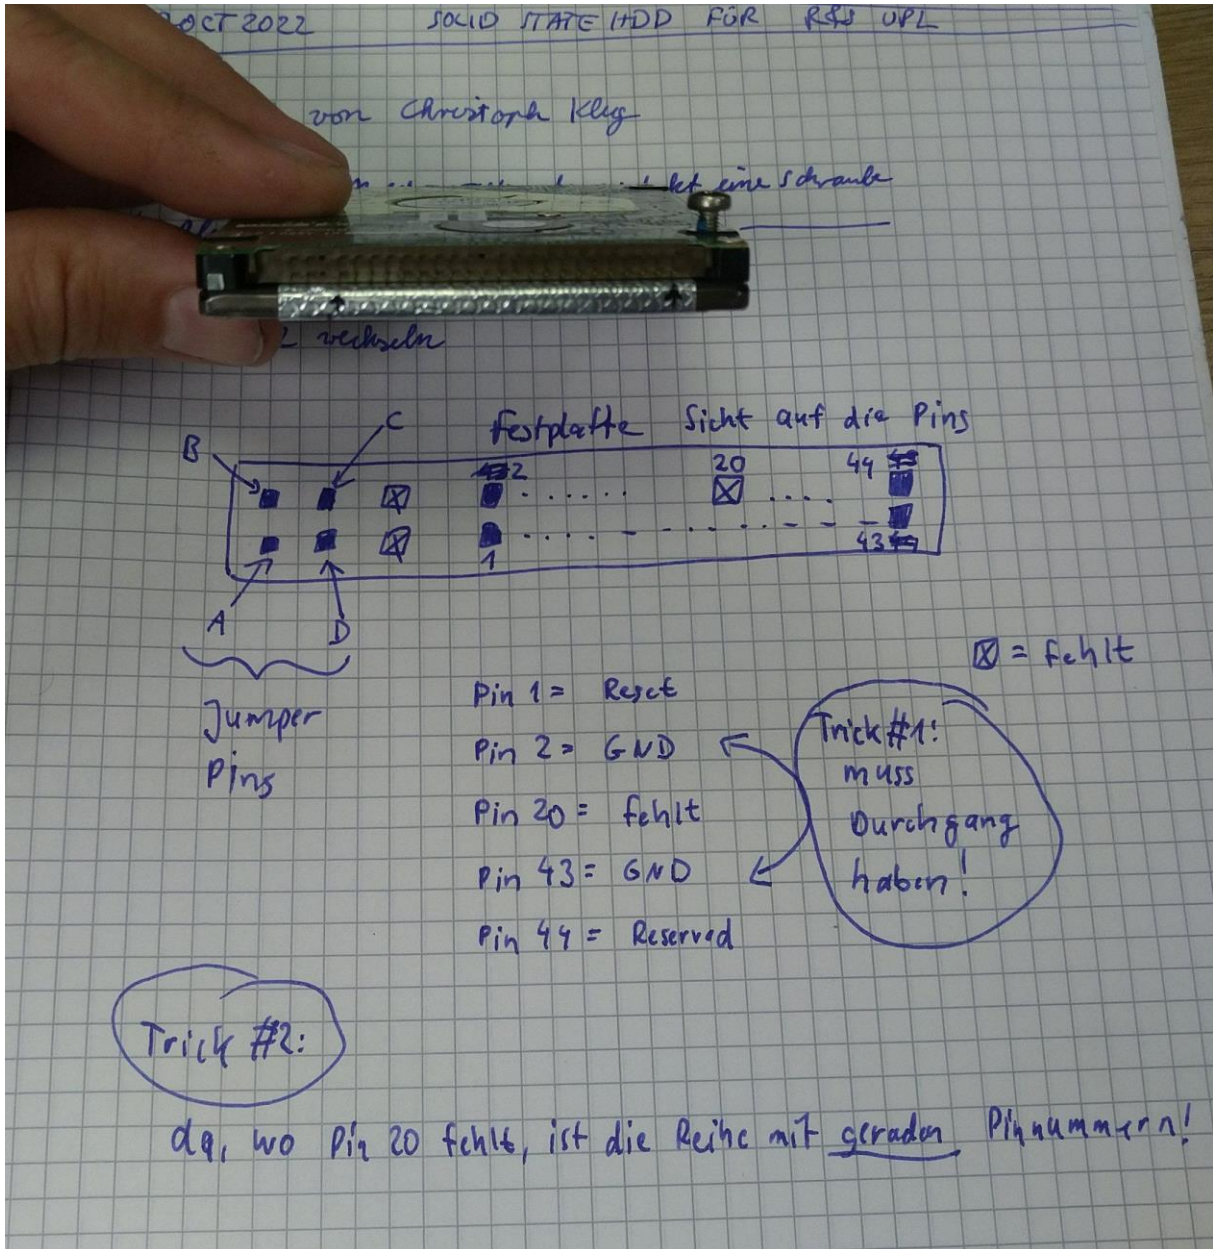 OCT 2022 SOLID STATE HDD FÜR R&S UPL
von Christoph Klug
eine Schraube
wechseln
Festplatte Sicht auf die Pins
B C
2 20 44
1 43
A D
Jumper
Pins
☒ = fehlt
Pin 1 = Reset
Pin 2 = GND
Pin 20 = fehlt
Pin 43 = GND
Pin 44 = Reserved
Trick #1:
muss
Durchgang
haben!
Trick #2:
da, wo Pin 20 fehlt, ist die Reihe mit geraden Pinnummern!